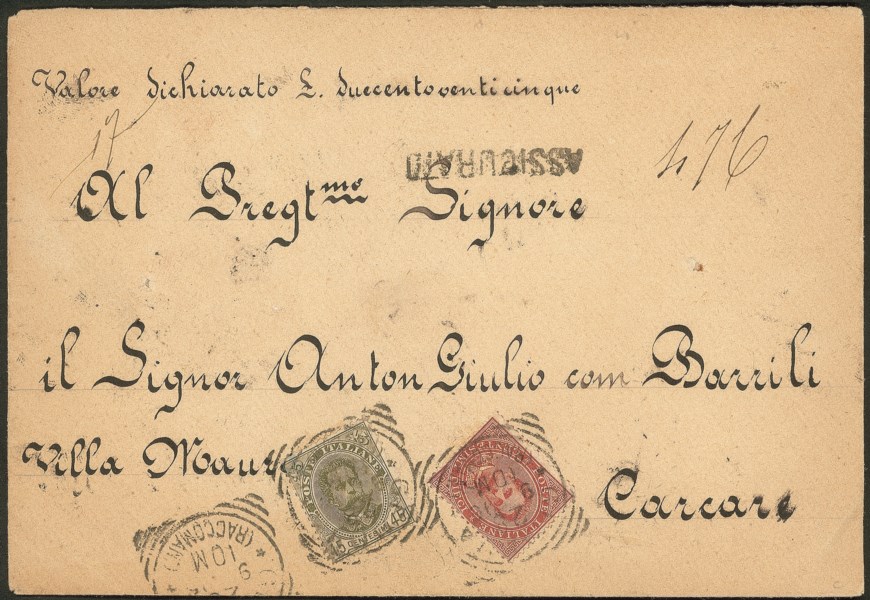 Valore dichiarato L. duecentoventicinque
17
ASSICURATO
476
Al Pregt.mo Signore
il Signor Anton Giulio com Barrili
Villa Maura
Carcare
POSTE ITALIANE
45 CENT 45
POSTE ITALIANE
9
10 M
(RACCOMAN)